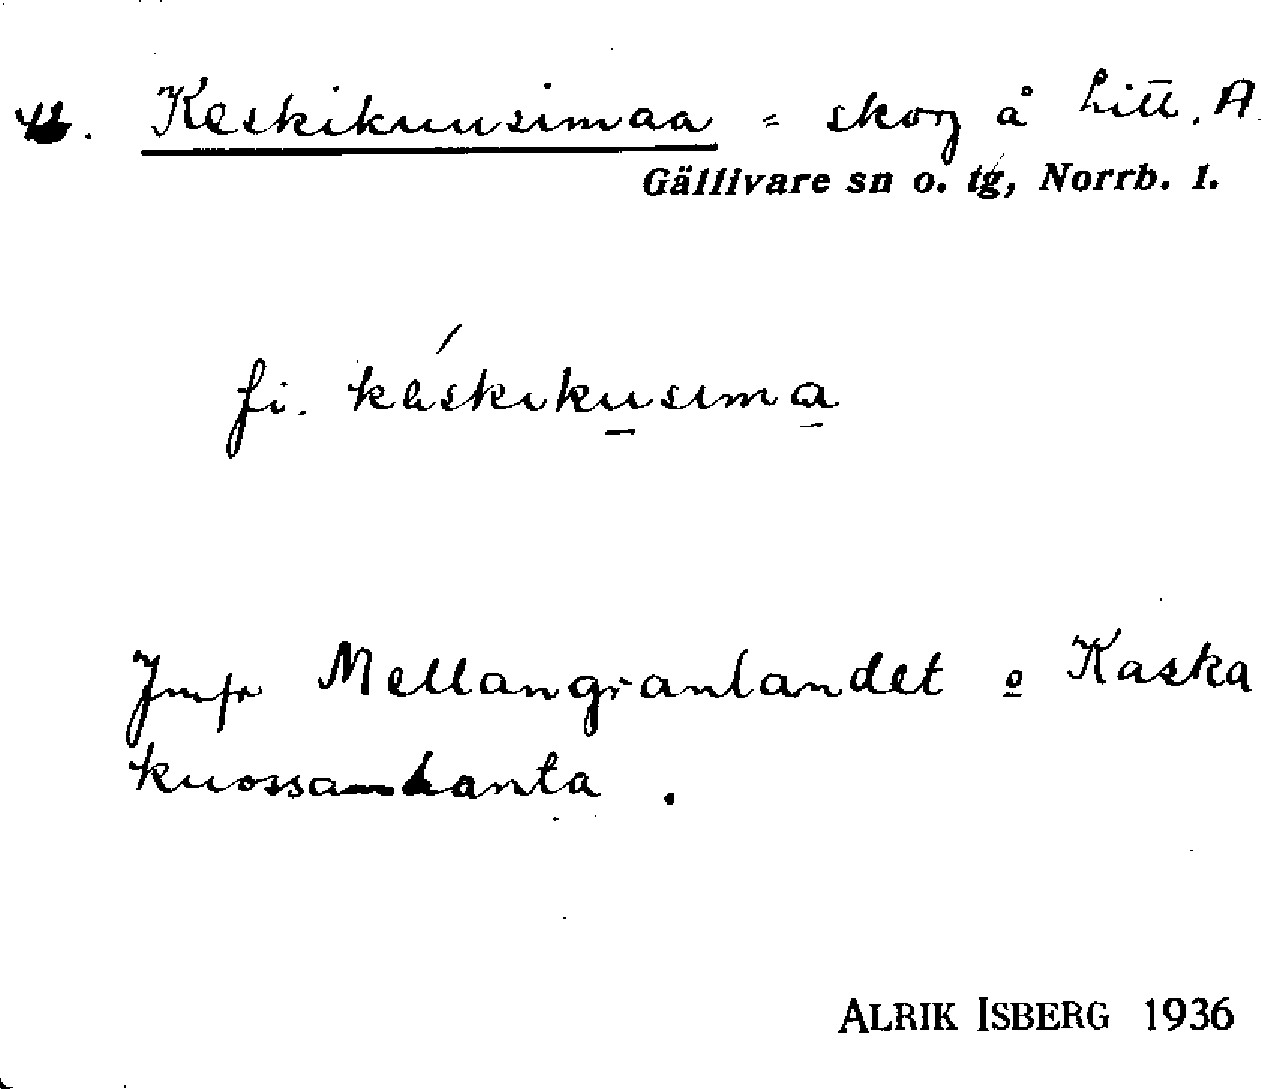 Keskikuusimaa = skog å Litt. A.
Gällivare sn o. tg, Norrb. l.
fi. késkikusima
Jmfr Mellangranlandet o Kaska
kuossa lanta.
ALRIK ISBERG 1936